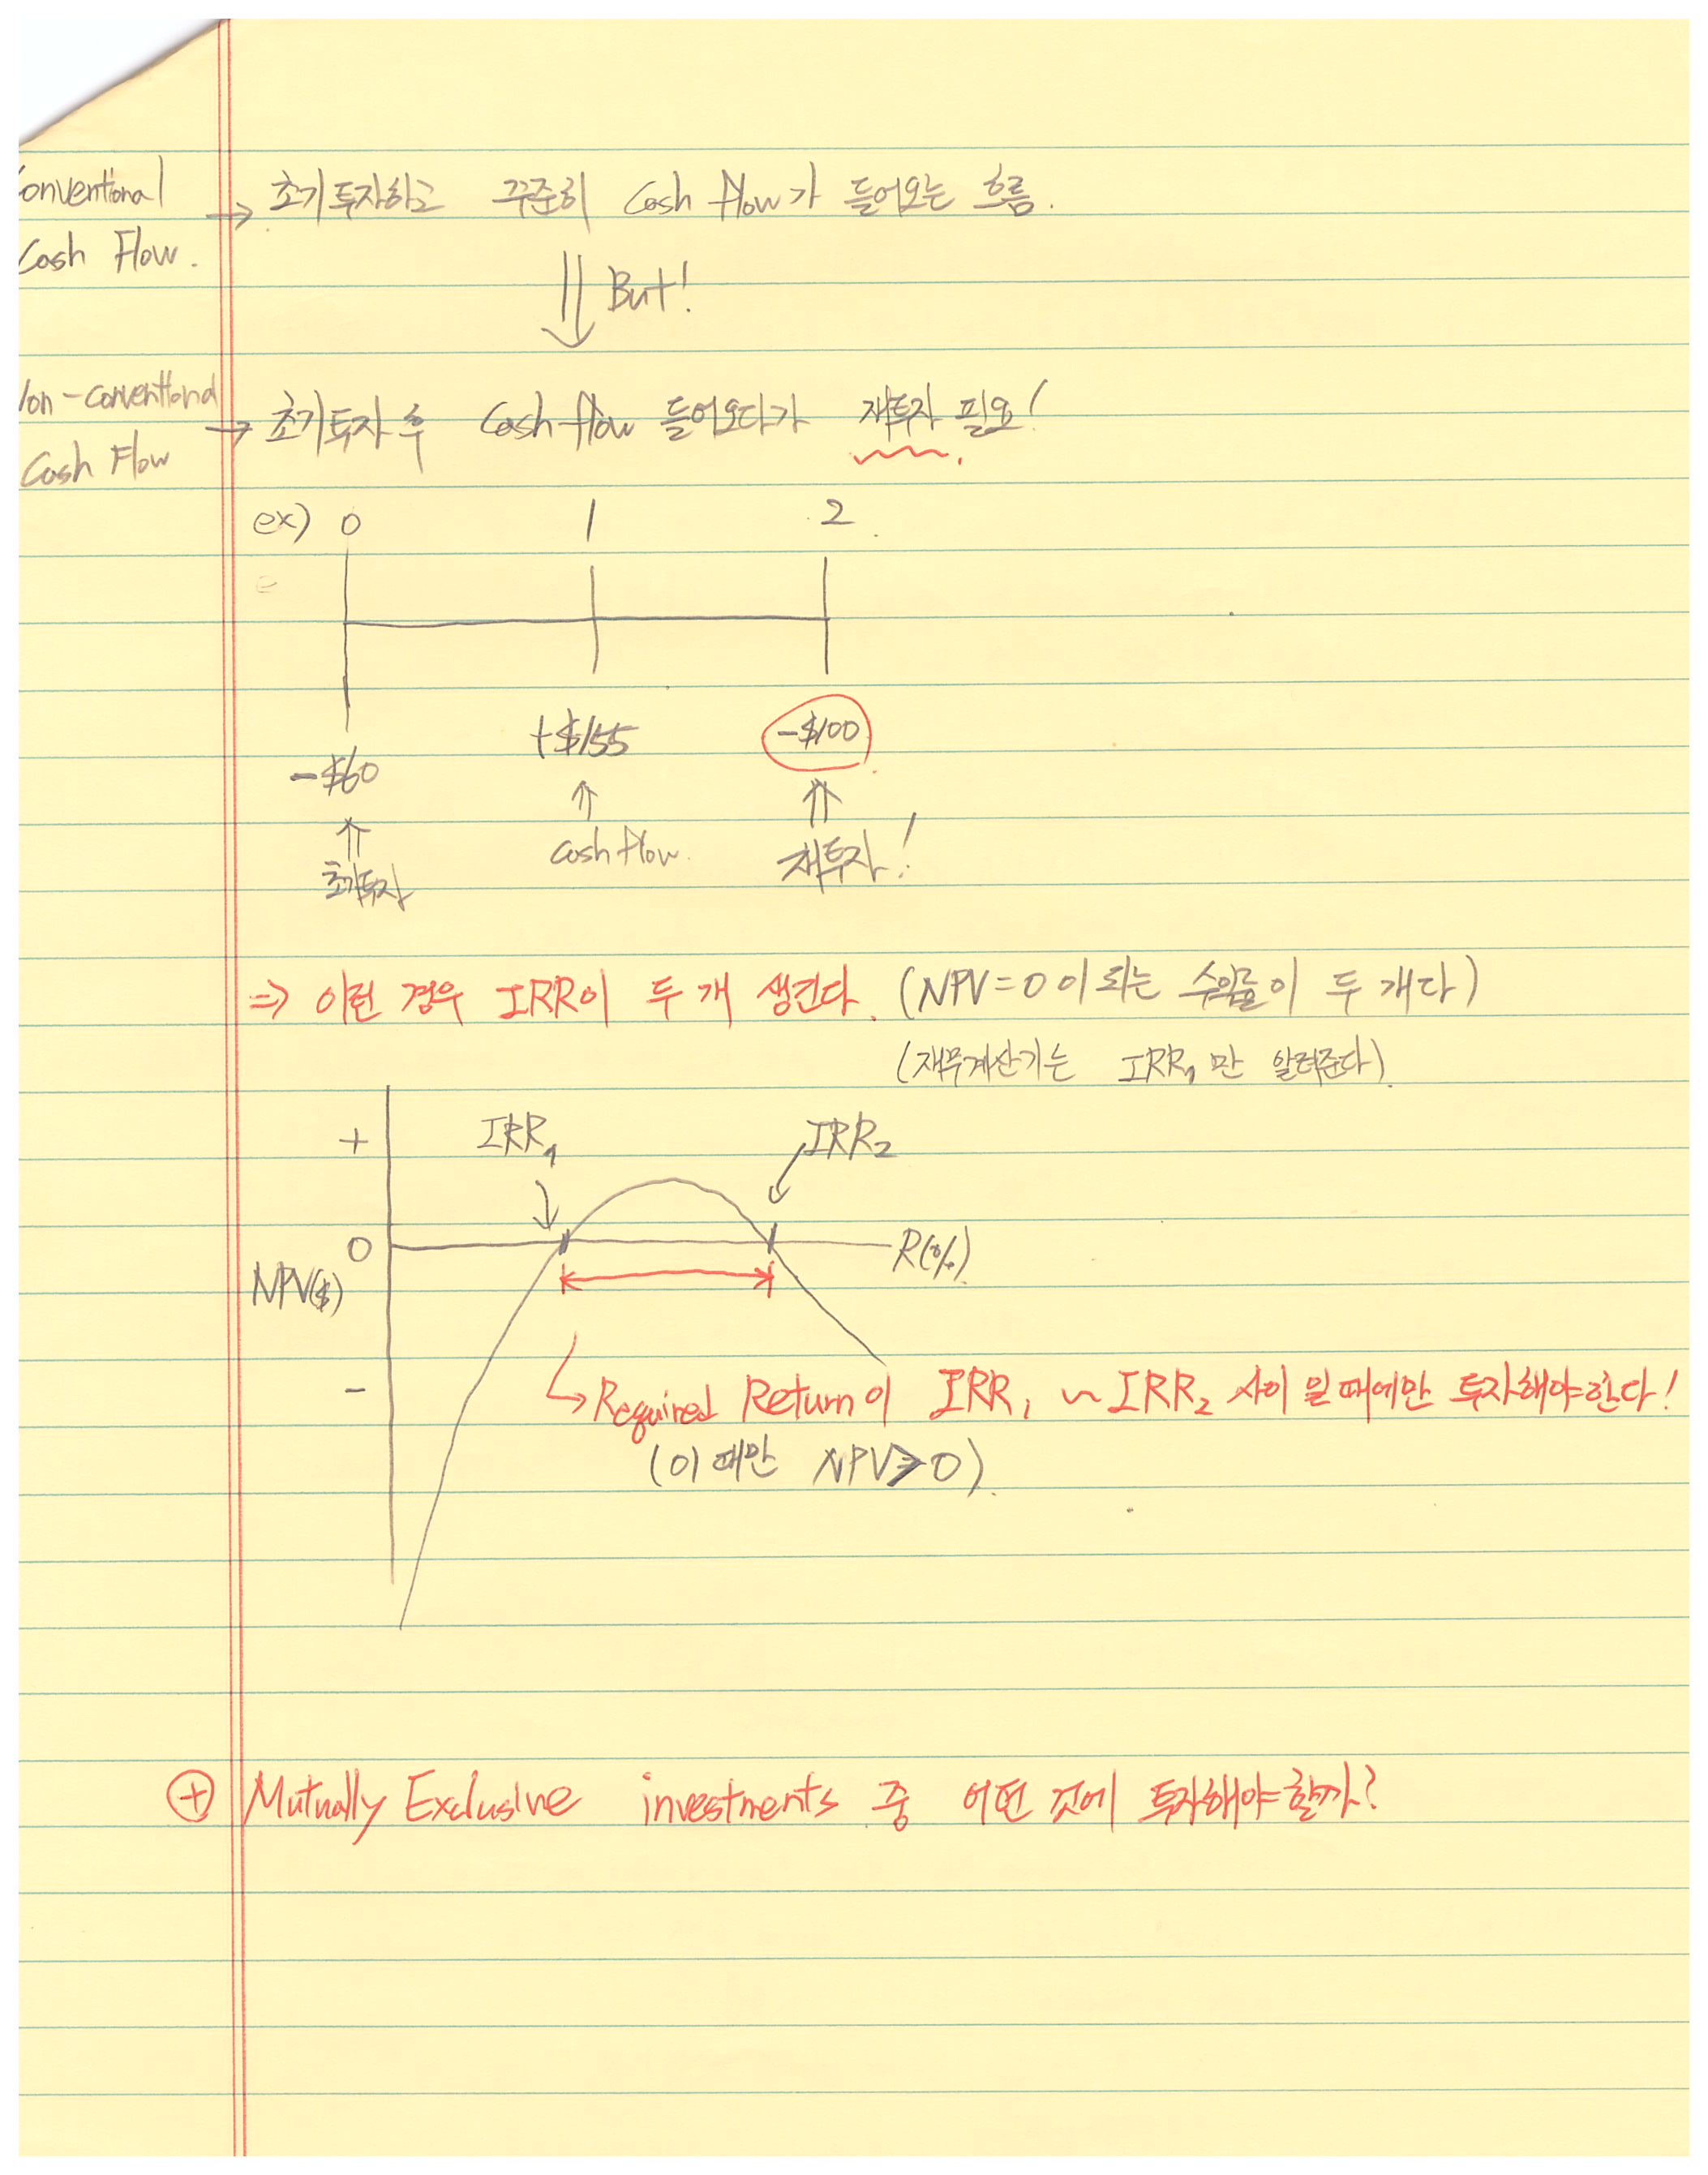 onventional
Cash Flow.
→ 초기투자하고 꾸준히 Cash flow가 들어오는 흐름.
But!
on-conventional
Cash Flow
→ 초기투자 후 Cash flow 들어오다가 재투자 필요!
ex) 0 1 2
-$60 +$155 -$100
초기투자 cash flow. 재투자!
⇒ 이런 경우 IRR이 두 개 생긴다. (NPV=0이 되는 수익률이 두 개다)
(재무계산기는 IRR₁만 알려준다).
+ IRR₁ IRR₂
0 R(%)
NPV($)
-
↳ Required Return이 IRR₁ ~ IRR₂ 사이 일 때에만 투자해야한다!
(이 때만 NPV≥0).
⊕ Mutually Exclusive investments 중 어떤 것에 투자해야할까?